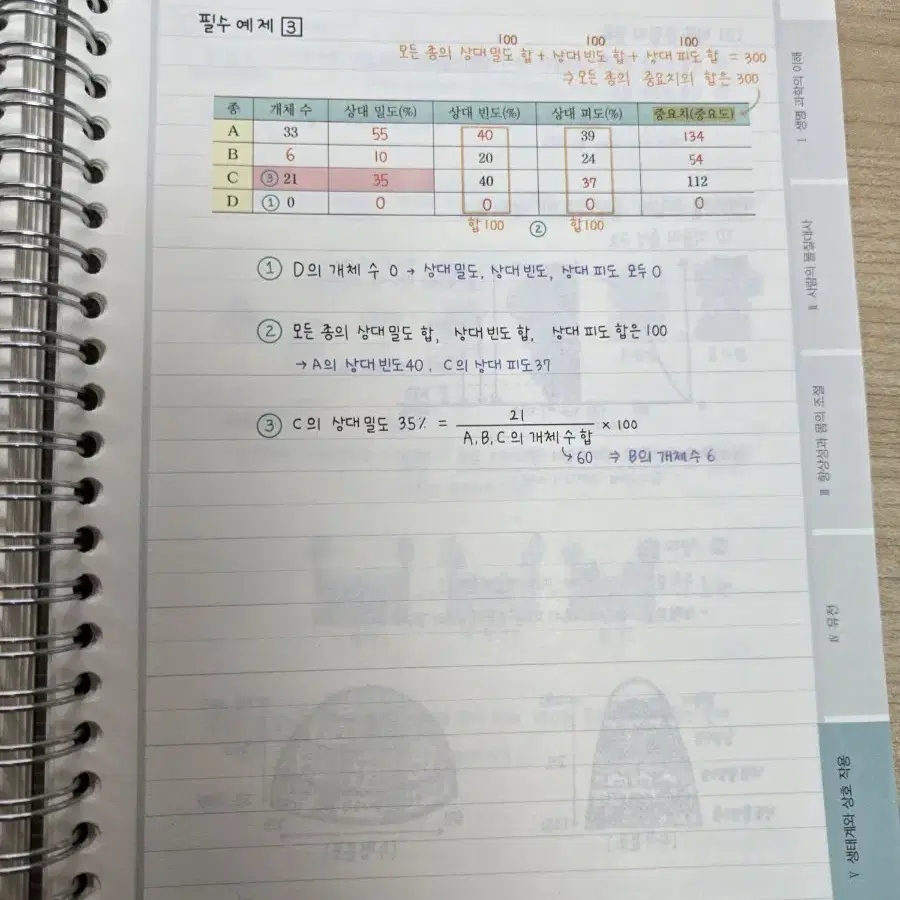 필수 예제 3
100 100 100
모든 종의 상대 밀도 합 + 상대 빈도 합 + 상대 피도 합 = 300
⇒ 모든 종의 중요치의 합은 300
종 개체 수 상대 밀도(%) 상대 빈도(%) 상대 피도(%) 중요치(중요도)
A 33 55 40 39 134
B 6 10 20 24 54
C ③ 21 35 40 37 112
D ① 0 0 0 0 0
합100 ② 합100
① D의 개체 수 0 → 상대 밀도, 상대 빈도, 상대 피도 모두 0
② 모든 종의 상대 밀도 합, 상대 빈도 합, 상대 피도 합은 100
→ A의 상대 빈도 40, C의 상대 피도 37
③ C의 상대 밀도 35% = 21 / A, B, C의 개체 수 합 × 100
↳ 60 ⇒ B의 개체 수 6
I 생명 과학의 이해
II 사람의 물질대사
III 항상성과 몸의 조절
IV 유전
V 생태계와 상호 작용